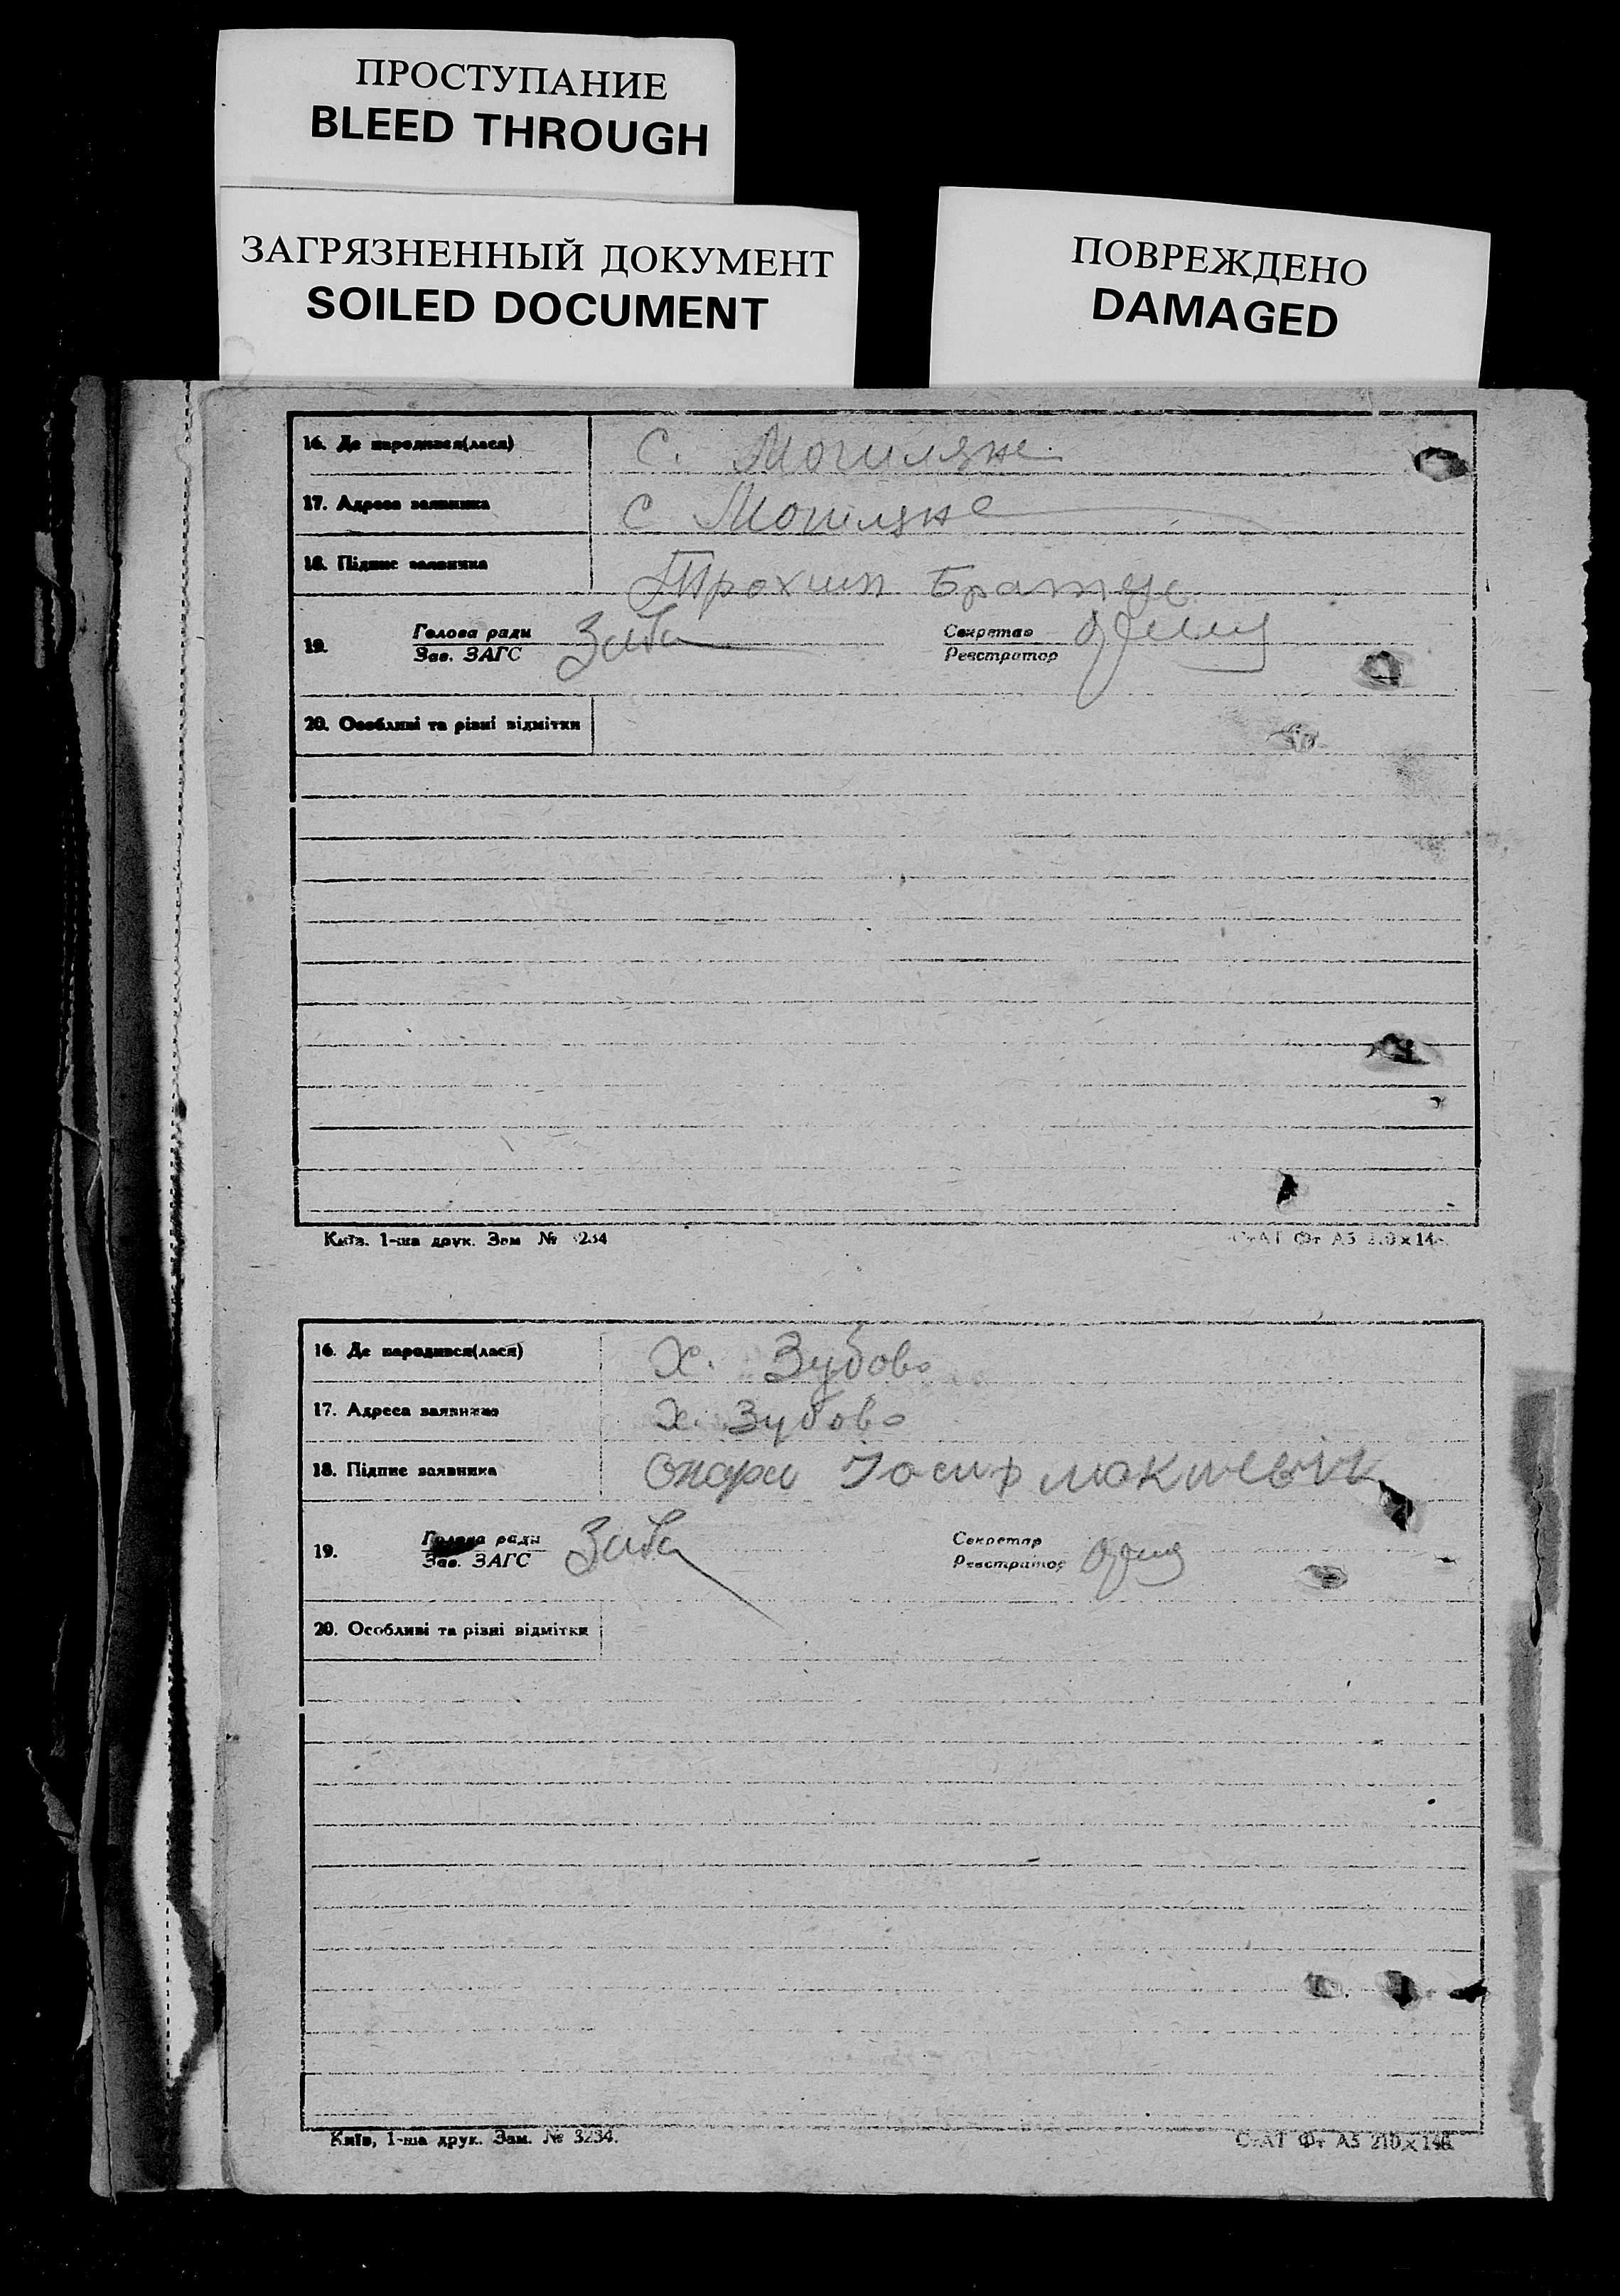 ПРОСТУПАНИЕ
BLEED THROUGH
ЗАГРЯЗНЕННЫЙ ДОКУМЕНТ
SOILED DOCUMENT
ПОВРЕЖДЕНО
DAMAGED
16. Де народився(лася) С. Могиляне
17. Адреса заявника С Могиляне
18. Підпис заявника Трохим
19. Голова ради Секретар
Зав. ЗАГС Реєстратор
20. Особливі та різні відмітки
Київ. 1-ша друк. Зам № 3234 СтАТ Фт А5 210×148
16. Де народився(лася) Х. Зубово
17. Адреса заявника Х. Зубово
18. Підпис заявника Опара Іосиф
19. Голова ради Секретар
Зав. ЗАГС Реєстратор
20. Особливі та різні відмітки
Київ, 1-ша друк. Зам. № 3234. СтАТ Фт А5 210×148